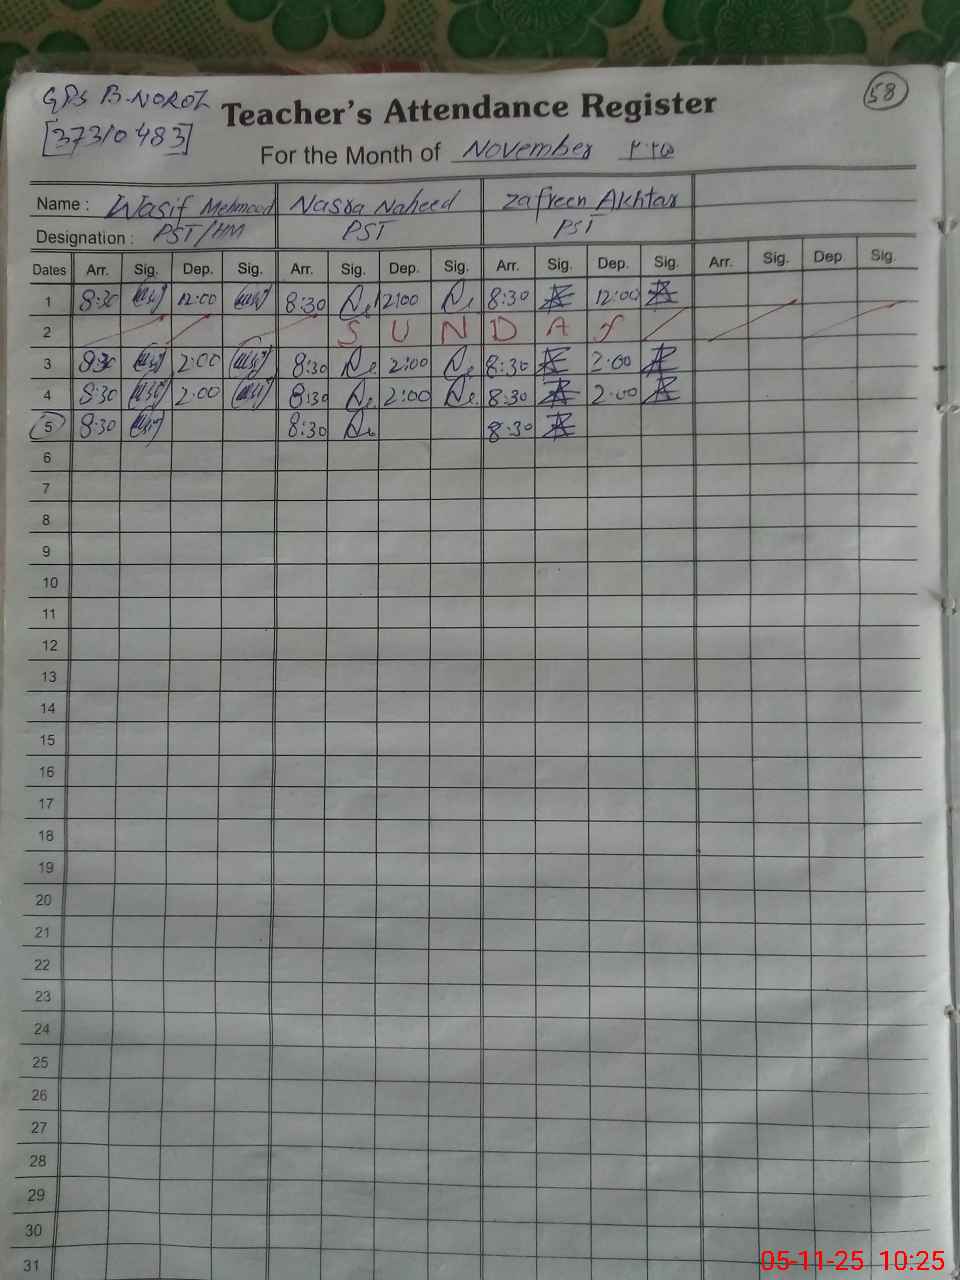 GPS B-NOROZ
58
[37310483]
Teacher's Attendance Register
For the Month of November ٢٠٢٥
Name : Wasif Mehmood Nasra Naheed Zafreen Akhtar
Designation : PST/HM PST PST
Dates Arr. Sig. Dep. Sig. Arr. Sig. Dep. Sig. Arr. Sig. Dep. Sig. Arr. Sig. Dep Sig.
1 8:30 12:00 8:30 12:00 8:30 12:00
2 SUNDAY
3 8:30 2:00 8:30 2:00 8:30 2:00
4 8:30 2:00 8:30 2:00 8:30 2:00
5 8:30 8:30 8:30
6
7
8
9
10
11
12
13
14
15
16
17
18
19
20
21
22
23
24
25
26
27
28
29
30
31
05-11-25 10:25